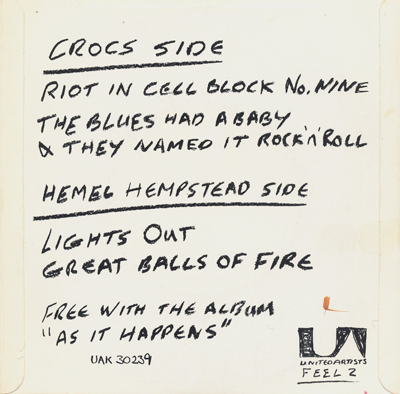 CROCS SIDE
RIOT IN CELL BLOCK No. NINE
THE BLUES HAD A BABY
& THEY NAMED IT ROCK'n'ROLL
HEMEL HEMPSTEAD SIDE
LIGHTS OUT
GREAT BALLS OF FIRE
FREE WITH THE ALBUM
"AS IT HAPPENS"
UAK 30239
UA
UNITED ARTISTS
FEEL 2